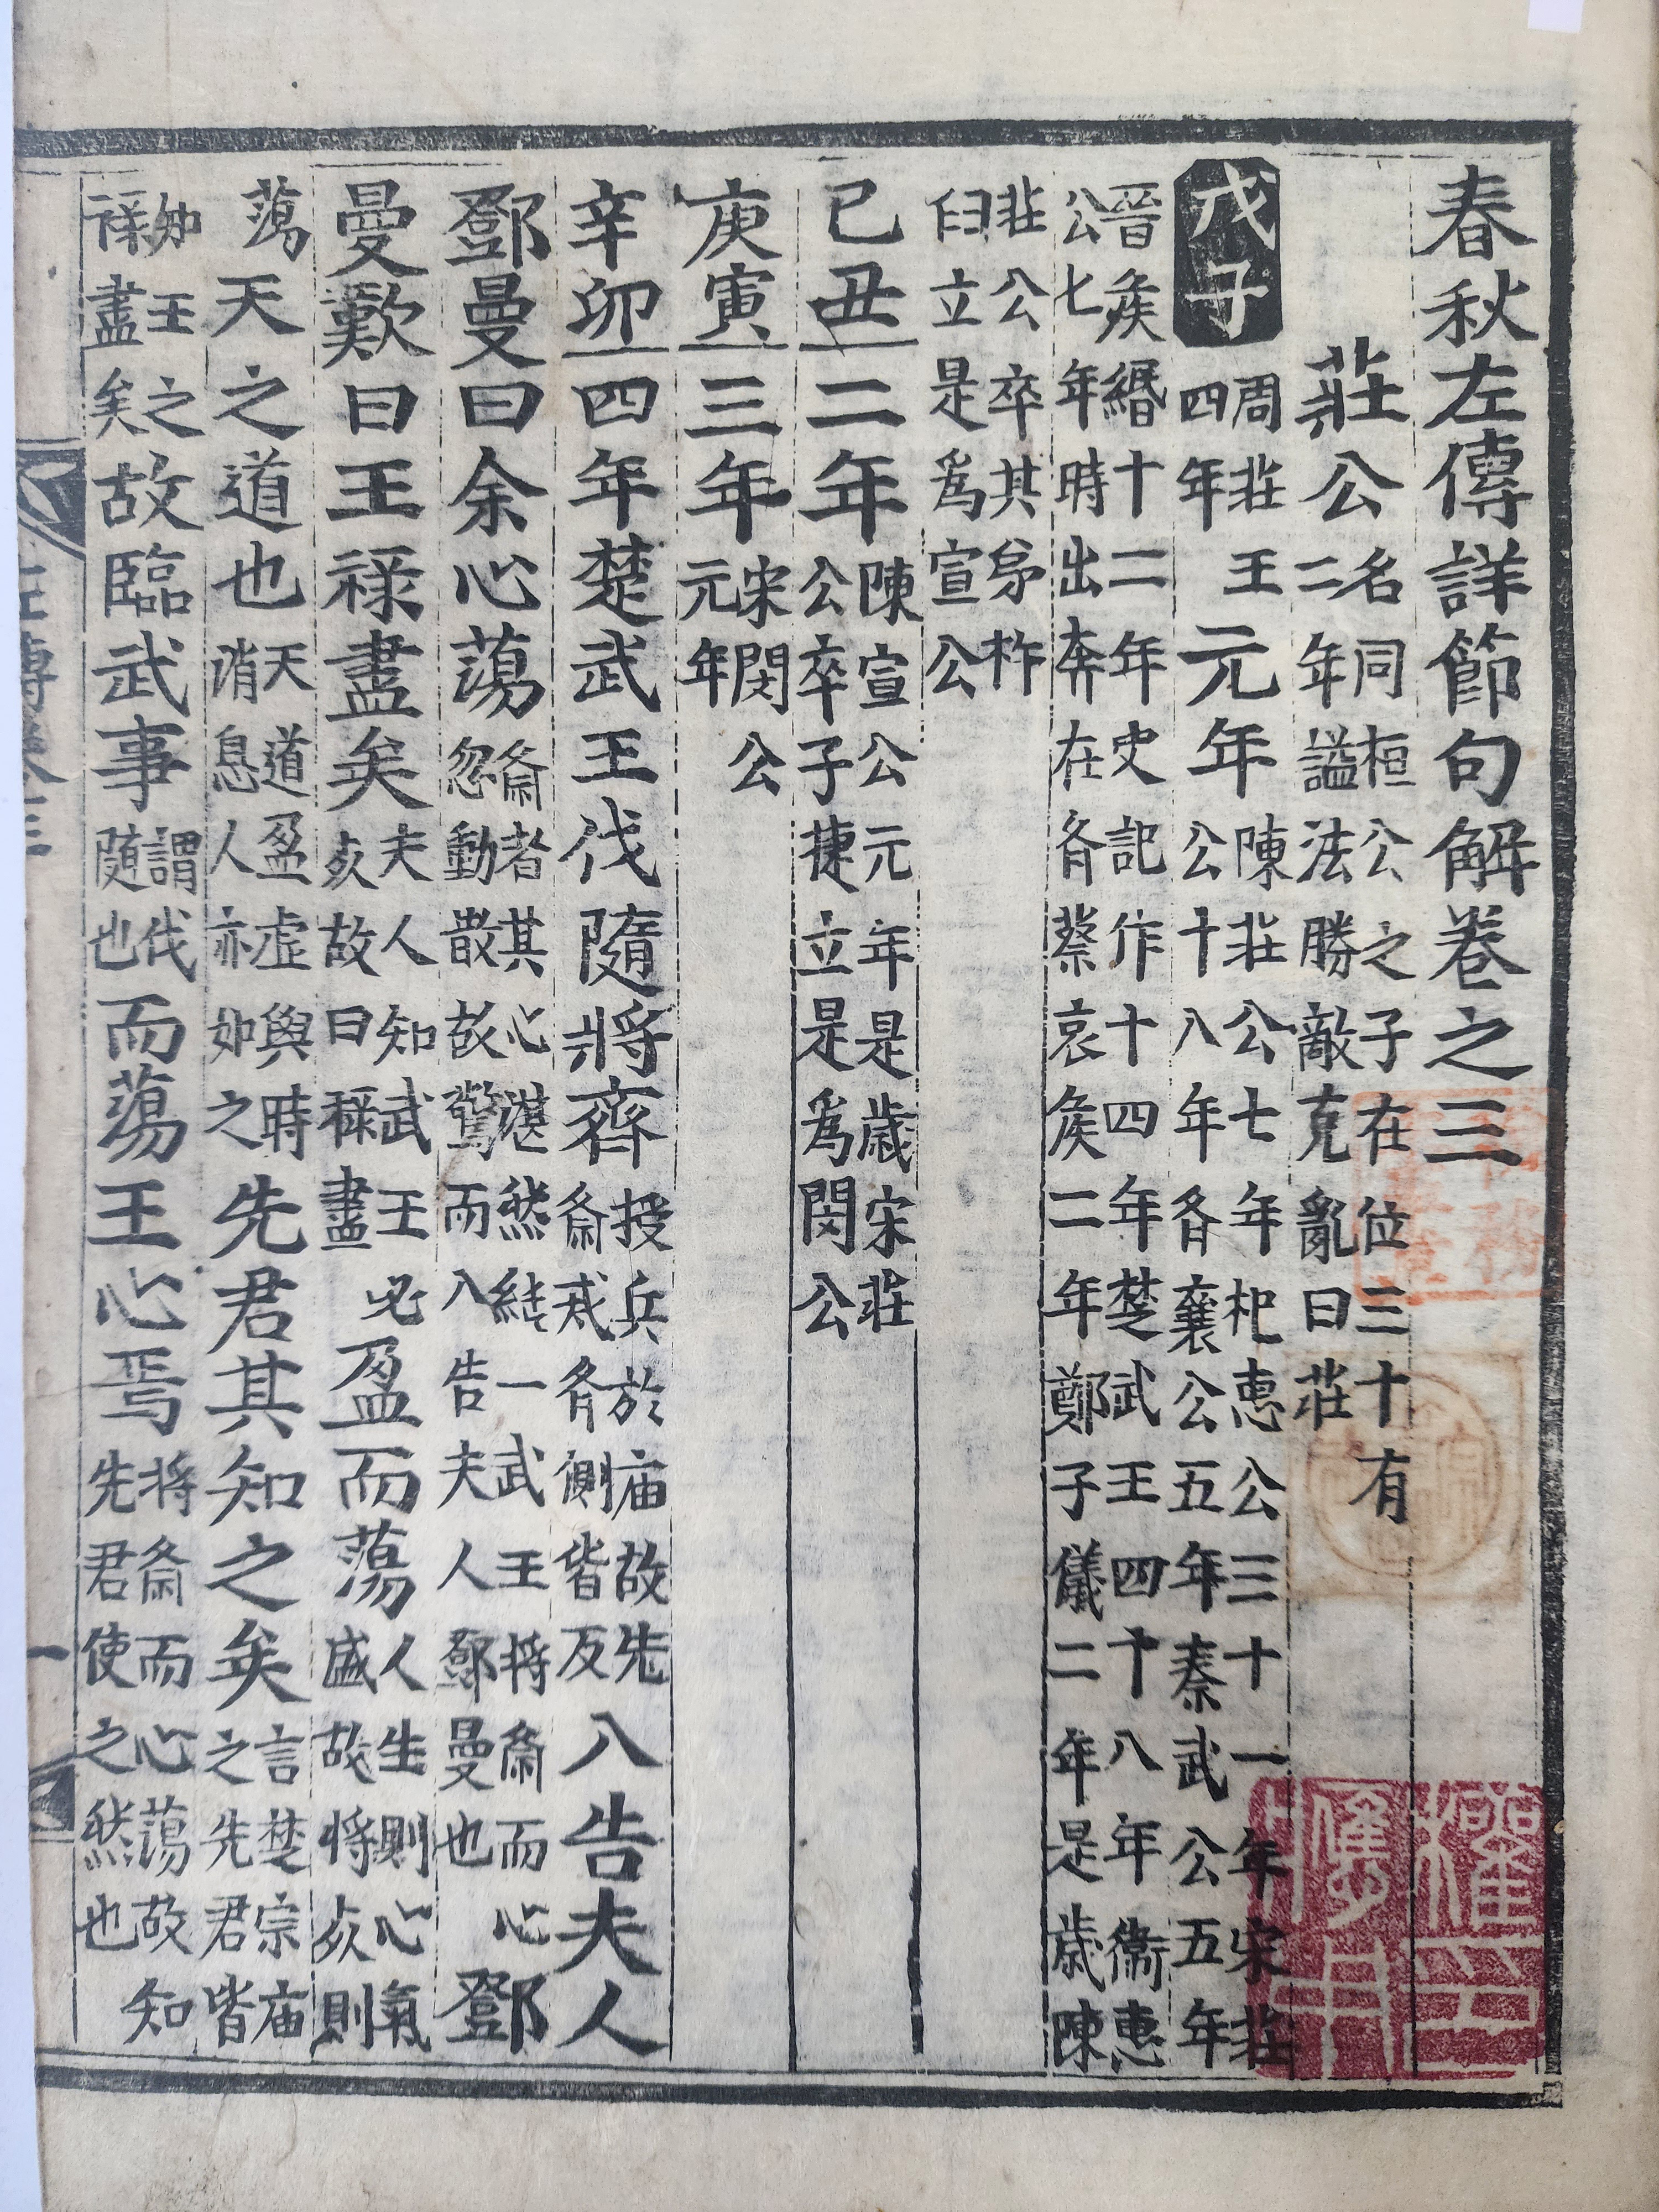 春秋左傳詳節句解卷之三
莊公名同桓公之子在位三十有二年謚法勝敵克亂曰莊
戊子周莊王四年元年陳莊公七年杞惠公三十一年宋莊公十八年齊襄公五年秦武公五年
晉侯緡十二年史記作十四年楚武王四十八年衛惠公七年時出奔在齊蔡哀侯二年鄭子儀二年是歲陳
莊公卒其弟杵臼立是爲宣公
己丑二年陳宣公元年是歲宋莊公卒子捷立是爲閔公
庚寅三年宋閔公元年
辛卯四年楚武王伐隨將齊授兵於庙故先齋戒齊側皆反入告夫人
鄧曼曰余心蕩齋者其心湛然純一武王將齋而心忽動散故驚而入告夫人鄧曼也鄧
曼歎曰王祿盡矣夫人知武王必死故曰祿盡盈而蕩人生則心氣盛故將死則
蕩天之道也天道盈虛與時消息人亦如之先君其知之矣言楚宗庙之先君皆
知王之祿盡矣故臨武事謂伐隨也而蕩王心焉將齋而心蕩故知先君使之然也
左傳卷三
一